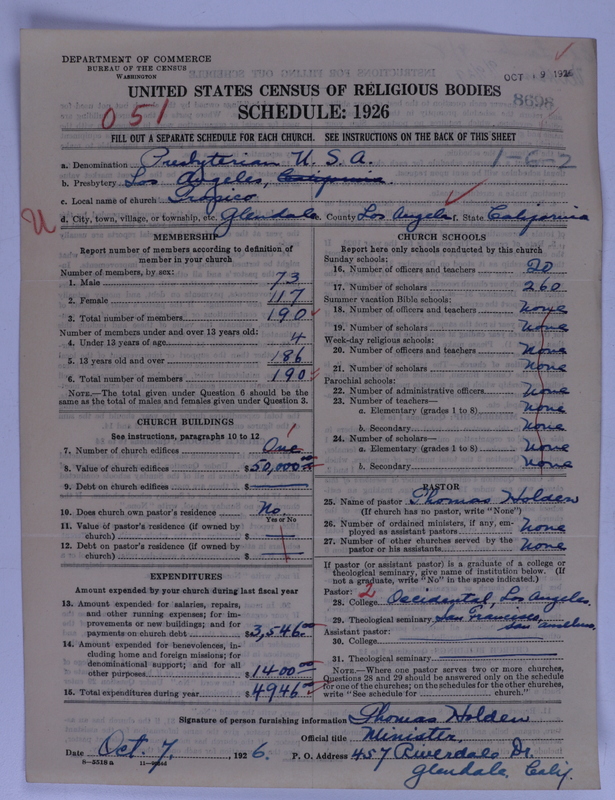 DEPARTMENT OF COMMERCE
BUREAU OF THE CENSUS
WASHINGTON
OCT 19 1926
8698
UNITED STATES CENSUS OF RELIGIOUS BODIES
SCHEDULE: 1926
051
FILL OUT A SEPARATE SCHEDULE FOR EACH CHURCH. SEE INSTRUCTIONS ON THE BACK OF THIS SHEET
a. Denomination Presbyterian U. S. A. 1-6-2
b. Presbytery Los Angeles, California.
c. Local name of church Tropico
U d. City, town, village, or township, etc. Glendale e. County Los Angeles f. State California
MEMBERSHIP
Report number of members according to definition of
member in your church
Number of members, by sex:
1. Male 73
2. Female 117
3. Total number of members 190
Number of members under and over 13 years old:
4. Under 13 years of age 4
5. 13 years old and over 186
6. Total number of members 190
NOTE.—The total given under Question 6 should be
the same as the total of males and females given under Question 3.
CHURCH BUILDINGS
See instructions, paragraphs 10 to 12
7. Number of church edifices One 1
8. Value of church edifices $50,000.00
9. Debt on church edifices $
10. Does church own pastor's residence? No.
Yes or No
11. Value of pastor's residence (if owned by
church) $
12. Debt on pastor's residence (if owned by
church) $
EXPENDITURES
Amount expended by your church during last fiscal year
13. Amount expended for salaries, repairs,
and other running expenses; for im-
provements or new buildings; and for
payments on church debt $3,546.
14. Amount expended for benevolences, in-
cluding home and foreign missions; for
denominational support; and for all
other purposes $1400.00
15. Total expenditures during year $4946.00
CHURCH SCHOOLS
Report here only schools conducted by this church
Sunday schools:
16. Number of officers and teachers 20
17. Number of scholars 260
Summer vacation Bible schools:
18. Number of officers and teachers None
19. Number of scholars None
Week-day religious schools:
20. Number of officers and teachers None
21. Number of scholars None
Parochial schools:
22. Number of administrative officers None
23. Number of teachers—
a. Elementary (grades 1 to 8) None
b. Secondary None
24. Number of scholars—
a. Elementary (grades 1 to 8) None
b. Secondary None
PASTOR
25. Name of pastor Thomas Holden
(If church has no pastor, write "None")
26. Number of ordained ministers, if any, em-
ployed as assistant pastors None
27. Number of other churches served by the
pastor or his assistants None
If pastor (or assistant pastor) is a graduate of a college or
theological seminary, give name of institution below. (If
not a graduate, write "No" in the space indicated.)
Pastor: 2
28. College Occidental, Los Angeles.
29. Theological seminary San Francisco, San Anselmo.
Assistant pastor:
30. College
31. Theological seminary
NOTE.—Where one pastor serves two or more churches,
Questions 28 and 29 should be answered only on the schedule
for one of the churches; on the schedules for the other churches,
write "See schedule for church."
Signature of person furnishing information Thomas Holden
Official title Minister.
Date Oct. 7, , 1926. P. O. Address 457 Riverdale Dr.
8—5518 a Glendale. Calif.